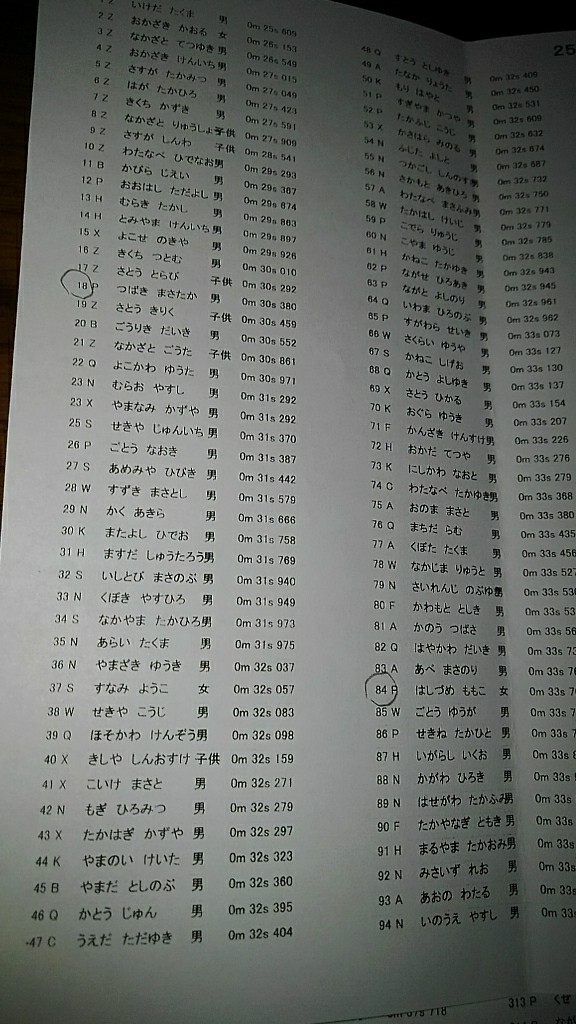 1 Z いけだ たくま 男 0m 25s 609
2 Z おかざき かおる 女 0m 26s 153
3 Z なかざと てつゆき 男 0m 26s 549
4 Z おかざき けんいち 男 0m 27s 015
5 Z さすが たかみつ 男 0m 27s 049
6 Z はが たかひろ 男 0m 27s 423
7 Z きくち かずき 男 0m 27s 591
8 Z なかざと りゅうしょ 子供 0m 27s 909
9 Z さすが しんわ 子供 0m 28s 541
10 Z わたなべ ひでなお男 0m 29s 293
11 B かびら じえい 男 0m 29s 367
12 P おおはし ただよし 男 0m 29s 674
13 H むらき たかし 男 0m 29s 863
14 H とみやま けんいち 男 0m 29s 897
15 X よこせ のきや 男 0m 29s 926
16 Z きくち つとむ 男 0m 30s 010
17 Z さとう とらび 子供 0m 30s 292
18 P つばき まさたか 男 0m 30s 380
19 Z さとう きりく 子供 0m 30s 459
20 B ごうりき だいき 男 0m 30s 552
21 Z なかざと ごうた 子供 0m 30s 861
22 Q よこかわ ゆうた 男 0m 30s 971
23 N むらお やすし 男 0m 31s 292
23 X やまなみ かずや 男 0m 31s 292
25 S せきや じゅんいち 男 0m 31s 370
26 P ごとう なおき 男 0m 31s 387
27 S あめみや ひびき 男 0m 31s 442
28 W すずき まさとし 男 0m 31s 579
29 N かく あきら 男 0m 31s 666
30 K またよし ひでお 男 0m 31s 758
31 H ますだ しゅうたろう男 0m 31s 769
32 S いしとび まさのぶ 男 0m 31s 940
33 N くぼき やすひろ 男 0m 31s 949
34 S なかやま たかひろ男 0m 31s 973
35 N あらい たくま 男 0m 31s 975
36 N やまざき ゆうき 男 0m 32s 037
37 S すなみ ようこ 女 0m 32s 057
38 W せきや こうじ 男 0m 32s 083
39 Q ほそかわ けんぞう男 0m 32s 098
40 X きしや しんおすけ 子供 0m 32s 159
41 X こいけ まさと 男 0m 32s 271
42 N もぎ ひろみつ 男 0m 32s 279
43 X たかはぎ かずや 男 0m 32s 297
44 K やまのい けいた 男 0m 32s 323
45 B やまだ としのぶ 男 0m 32s 360
46 Q かとう じゅん 男 0m 32s 395
-47 C うえだ ただゆき 男 0m 32s 404
25
48 Q すとう としゆき 男 0m 32s 409
49 A たなか りょうた 男 0m 32s 450
50 K もり はやと 男 0m 32s 531
51 P すぎやま かつや 男 0m 32s 608
52 P たかふじ こうじ 男 0m 32s 632
53 X かさはら みのる 男 0m 32s 674
54 N ふじた よしと 男 0m 32s 687
55 N つかごし しんのす男 0m 32s 732
56 N さかもと あきひろ 男 0m 32s 750
57 A わたなべ まさふみ男 0m 32s 771
58 W たかはし けいじ 男 0m 32s 779
59 P こでら りゅうじ 男 0m 32s 785
60 N こやま ゆうじ 男 0m 32s 838
61 H かねこ たかゆき 男 0m 32s 943
62 P ながせ ひろあき 男 0m 32s 945
63 P ながと よしのり 男 0m 32s 961
64 Q いわま ひろのぶ 男 0m 32s 962
65 P すがわら せいき 男 0m 33s 073
66 W さくらい ゆうや 男 0m 33s 127
67 S かねこ しげお 男 0m 33s 130
68 Q かとう よしゆき 男 0m 33s 137
69 X さとう ひかる 男 0m 33s 154
70 K おぐら ゆうき 男 0m 33s 207
71 F かんざき けんすけ男 0m 33s 226
72 H おかだ てつや 男 0m 33s 276
73 K にしかわ なおと 男 0m 33s 279
74 C わたなべ たかゆき男 0m 33s 368
75 A おのま まさと 男 0m 33s 380
76 Q まちだ らむ 男 0m 33s 435
77 A くぼた たくま 男 0m 33s 456
78 W なかじま りゅうと 男 0m 33s 527
79 N さいれんじ のぶゆ男 0m 33s 530
80 F かわもと としき 男 0m 33s 53
81 A かのう つばさ 男 0m 33s 56
82 Q はやかわ だいき 男 0m 33s 73
83 A あべ まさのり 男 0m 33s 76
84 P はしづめ ももこ 女 0m 33s 76
85 W ごとう ゆうが 男 0m 33s 7
86 P せきね たかひと 男 0m 33s 7
87 H いがらし いくお 男 0m 33s 8
88 N かがわ ひろき 男 0m 33s
89 N はせがわ たかふみ男 0m 33s
90 F たかやなぎ ともき 男 0m 33s
91 H まるやま たかおみ男 0m 33s
92 N みさいず れお 男 0m 33s
93 A あおの わたる 男 0m 33s
94 N いのうえ やすし 男 0m 33s
313 P くせ